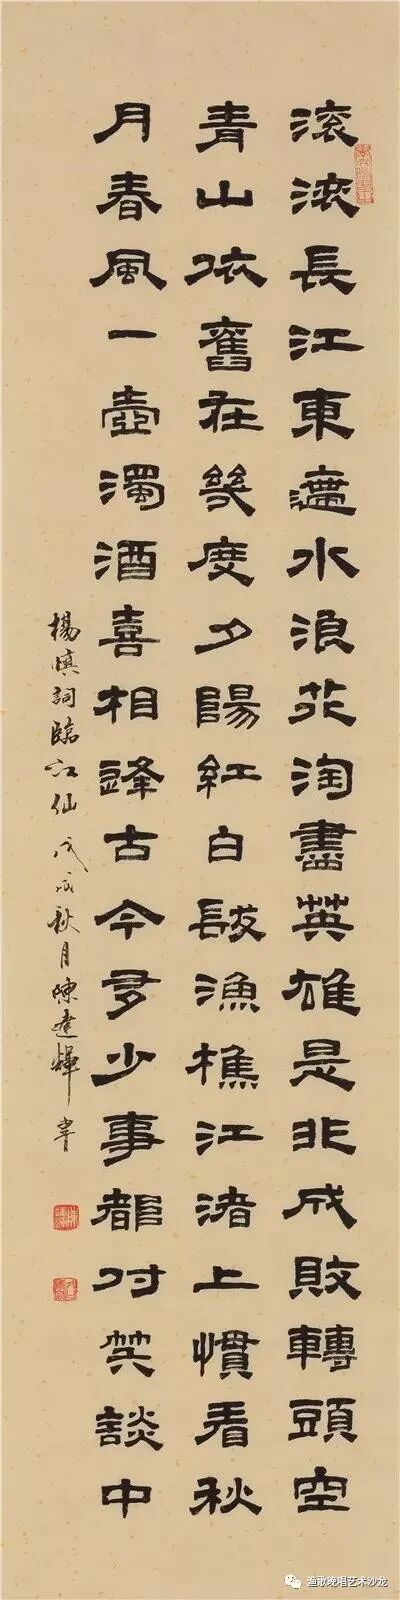 滚滚長江東逝水浪花淘盡英雄是非成敗轉頭空
青山依舊在幾度夕陽紅白髮漁樵江渚上慣看秋
月春風一壺濁酒喜相逢古今多少事都付笑談中
楊慎詞臨江仙戊戌秋月陳建輝書
渔歌晚唱艺术沙龙